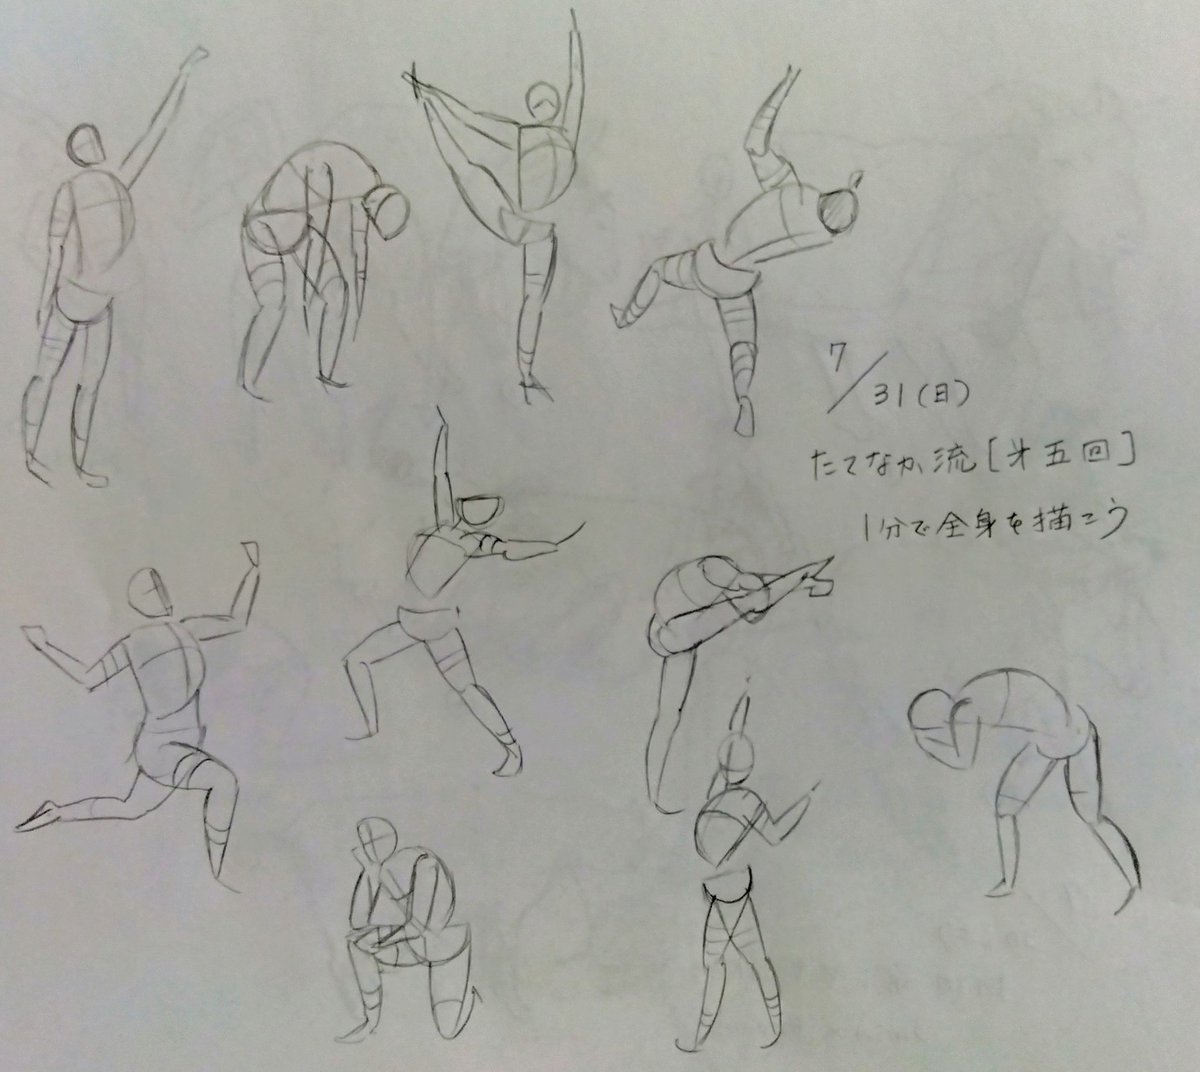 7/31(日)
たてなか流[㐧五回]
1分で全身を描こう